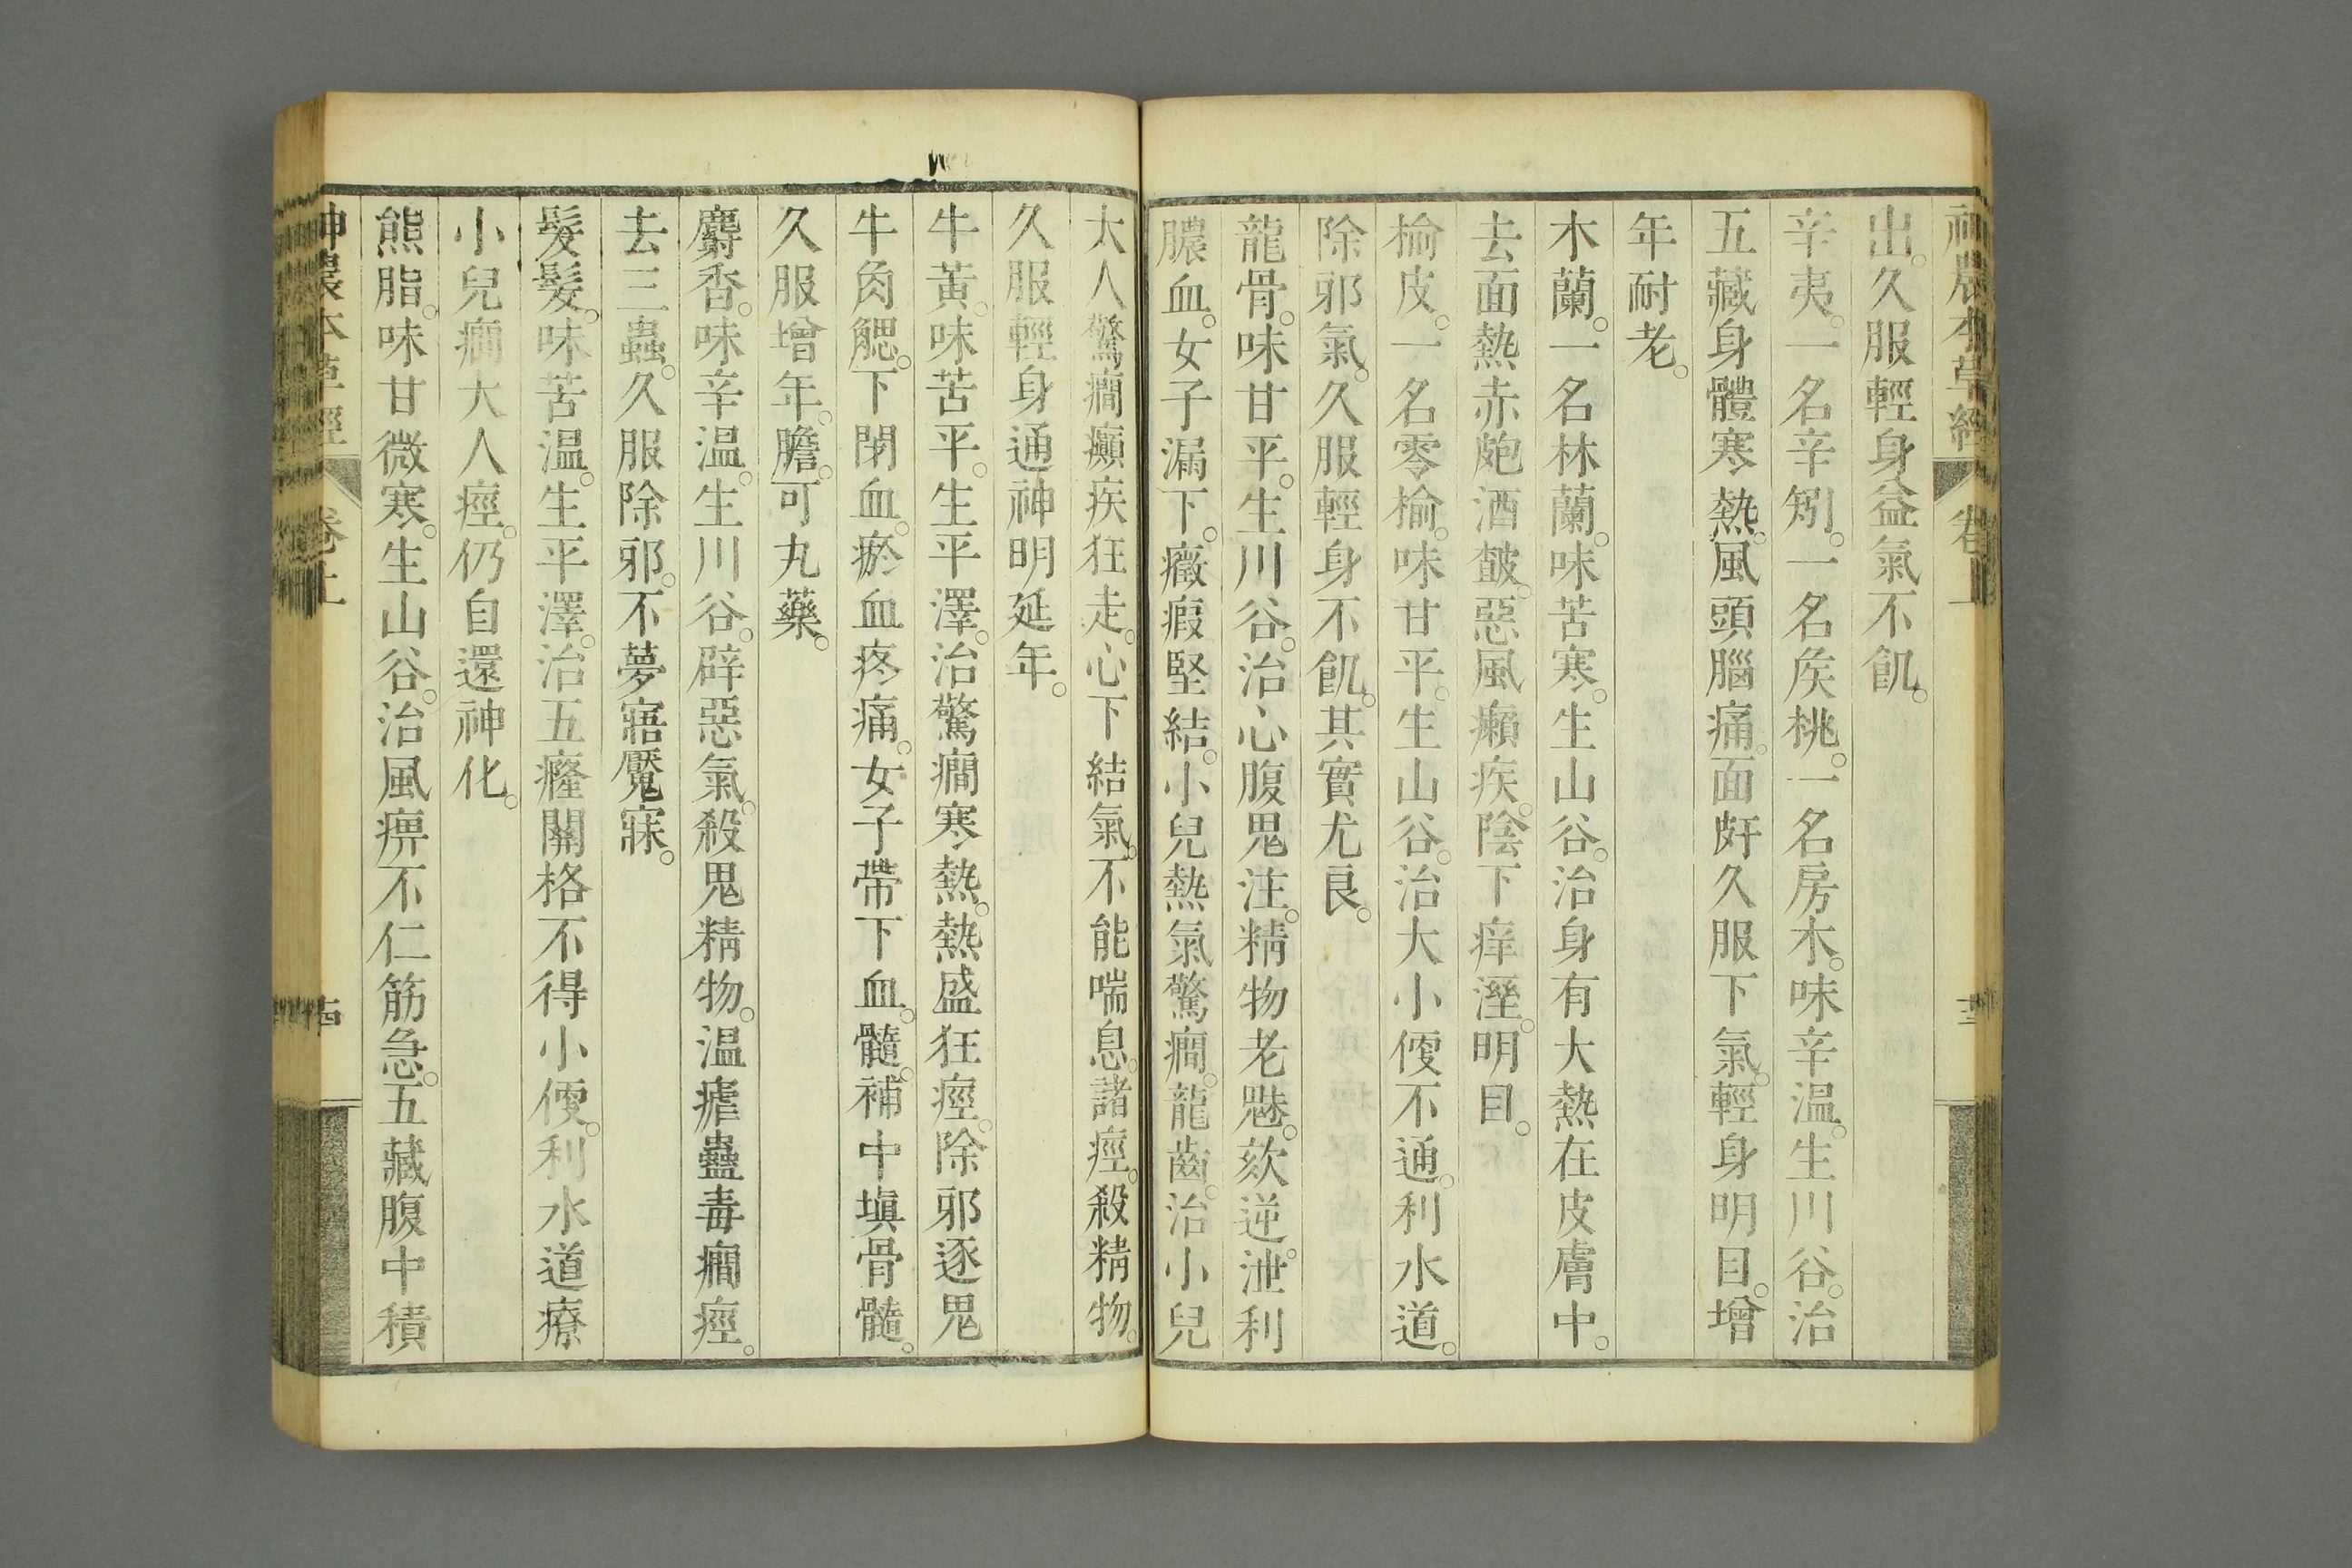 神農本草經 卷上
出。久服輕身益氣不飢。
辛夷。一名辛矧。一名矦桃。一名房木。味辛溫。生川谷。治
五藏身體寒熱。風頭腦痛。面皯久服下氣。輕身明目。增
年耐老。
木蘭。一名林蘭。味苦寒。生山谷。治身有大熱在皮膚中。
去面熱赤皰酒皶。惡風癩疾。陰下痒溼。明目。
榆皮。一名零榆。味甘平。生山谷。治大小便不通。利水道。
除邪氣。久服輕身不飢。其實尤良。
龍骨。味甘平。生川谷。治心腹鬼注。精物老魅。欬逆。泄利
膿血。女子漏下。癥瘕堅結。小兒熱氣驚癇。龍齒。治小兒
大人驚癇癲疾狂走。心下結氣。不能喘息。諸痙。殺精物。
久服輕身通神明延年。
牛黃。味苦平。生平澤。治驚癇寒熱。熱盛狂痙。除邪逐鬼
牛角䚡。下閉血。瘀血疼痛。女子帶下血。髓。補中塡骨髓。
久服增年。膽。可丸藥。
麝香。味辛溫。生川谷。辟惡氣。殺鬼精物。溫瘧蠱毒癇痙。
去三蟲。久服除邪。不夢寤魘寐。
髮髲。味苦溫。生平澤。治五癃關格不得小便。利水道療
小兒癇大人痙。仍自還神化。
熊脂。味甘微寒。生山谷。治風痹不仁筋急。五藏腹中積
神農本草經 卷上 十四